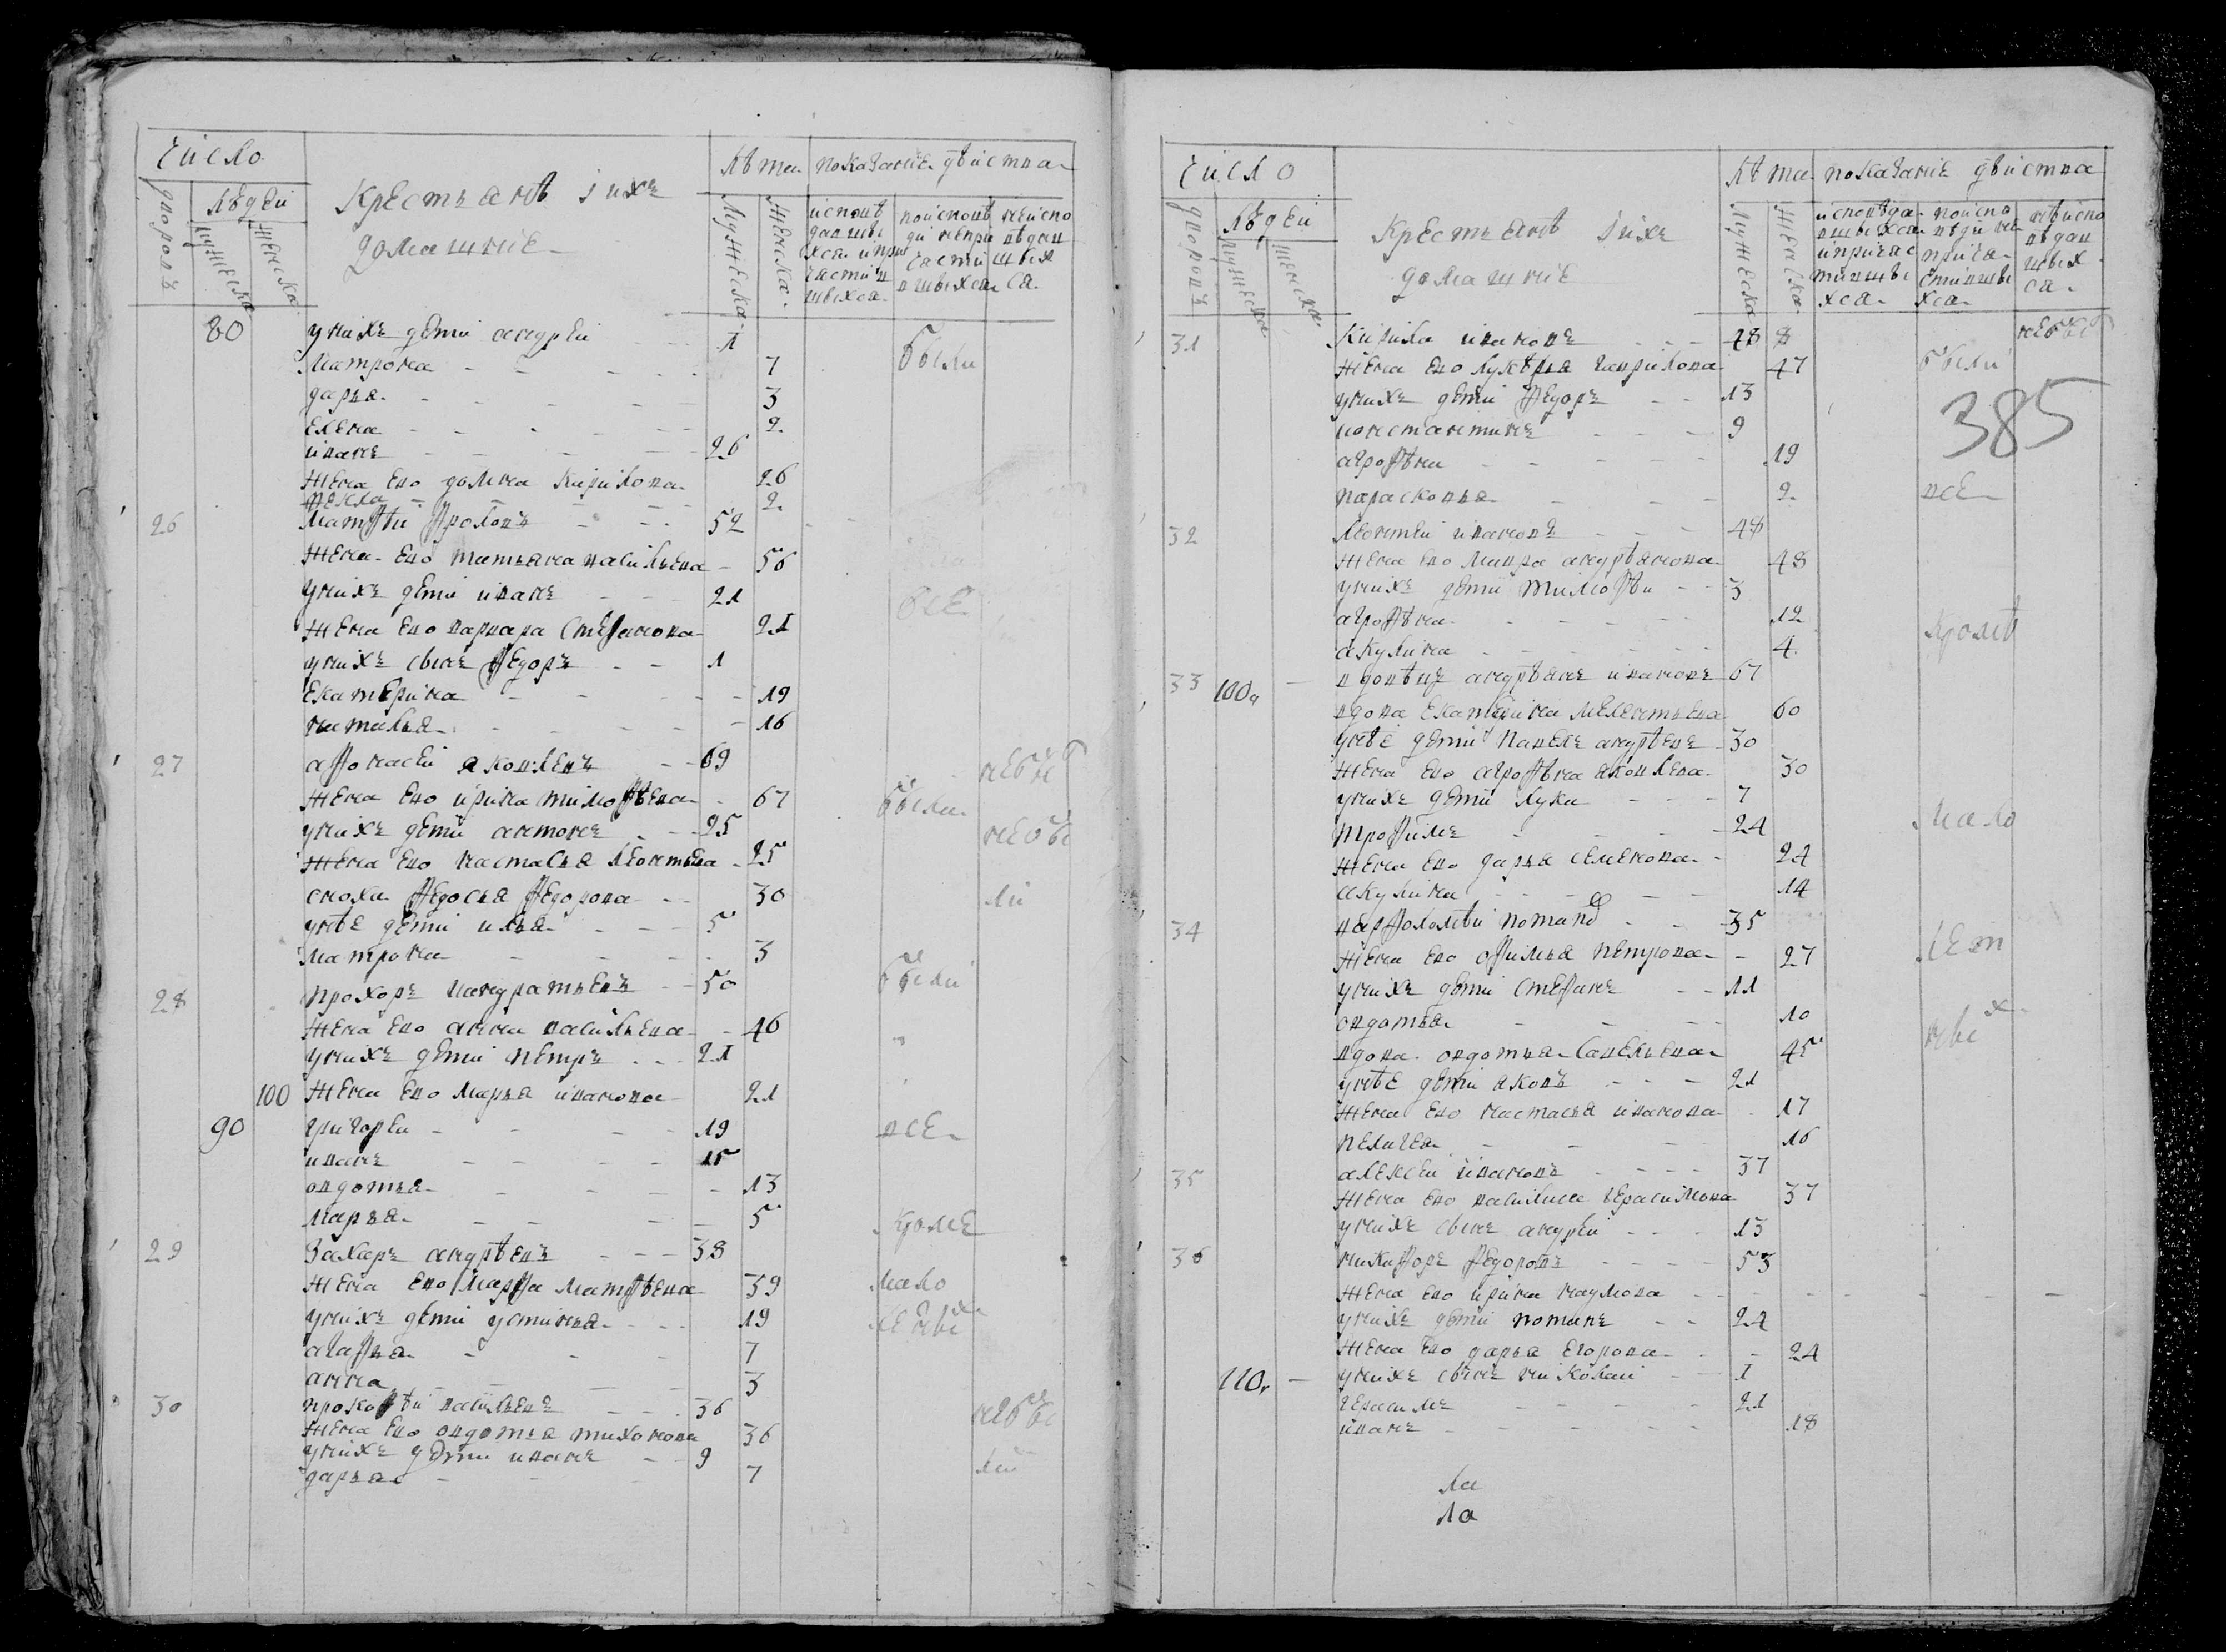 число
лѣта показание дѣиства
дворовъ
людеи
мужеска
женска
Крестьянѣ i ихъ
домашние
мужеска
женска
исповѣ
давшие
хся и при
части в
шихся
по исповѣ
ди непри
части
вшихся
неиспо
вѣдав
шихся
80 у нихъ дѣти андреи 1
Матрона 7 были
дарья 3
елена 2
иванъ 26
жена ево домна Кирилова 26
фекла 2
26 Матфеи фроловъ 52
жена ево татьяна васильева 56
у нихъ дѣти иванъ 21 все
жена ево варвара Стефанова 21
у нихъ сынъ федоръ 1
Екатерина 19
наталья 16
27 афонасеи яковлевъ 69 небы
жена ево ирина тимофѣева 67 были
у нихъ дѣти антонъ 25 небы
жена ево настасья леонтьева 25
сноха федосья федорова 30 ли
у нѣе дѣти илья 5
матрона 3
28 прохоръ кандратьевъ 50 были
жена ево анна васильева 46
у нихъ дѣти петръ 21
100 жена ево марья иванова 21
90 григореи 19 все
иванъ 15
овдотья 13
марья 5 кроме
29 Захаръ андрѣевъ 38
жена ево Марфа матфѣева 39 мало
у нихъ дѣти устинья 19
агафья 7
анна 3
30 прокофѣи васильевъ 36 небы
жена ево овдотья тихонова 36
у нихъ дѣти иванъ 9 ли
дарья 7
число
лѣта показание дѣиства
дворовъ
людеи
мужеска
женска
Крестьянѣ i ихъ
домашние
мужеска
женска
исповѣда
вшихся
и причас
тившы
хся
по испо
вѣди не
прича
стившы
хся
неиспо
вѣдав
шихся
31 Кирила ивановъ 48 небы
жена ево лукѣрья гаврилова 47 были
у нихъ дѣти федоръ 13
385
констянтинъ 9
агрофѣна 19
парасковья 2 все
32 леонтеи ивановъ 48
жена ево мавра андрѣянова 48
у нихъ дѣти тимофѣи 3
агрофѣна 12 кромѣ
акулина 4
33 100 вдовѣцъ андрѣянъ ивановъ 67
вдова екатерина мелентьева 60
у нѣе дѣти павелъ андрѣевъ 30
жена ево агрофѣна яковлева 30
у нихъ дѣти лука 7
трофимъ 24 мало
жена ево дарья семенова 24
акулина 14
34 варфоломѣи потаповъ 35
жена ево офимья петрова 27 лет
у нихъ дѣти стефанъ 11
овдотья 10
вдова овдотья савельева 45 ных
у нѣе дѣти яковъ 21
жена ево настасья иванова 17
пелагея 16
35 алексеи ивановъ 37
жена ево василиса герасимова 37
у нихъ сынъ андреи 13
36 никифоръ федоровъ 53
жена ево ирина наумова
у нихъ дѣти потапъ 24
жена ево дарья егорова 24
110 у нихъ сынъ николаи 1
герасимъ 21
иванъ 18
ла
ла